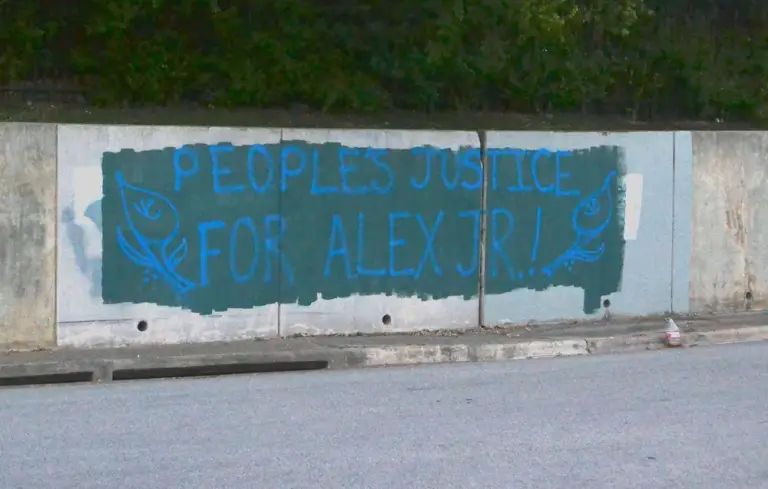 PEOPLE'S JUSTICE
FOR ALEX JR.!